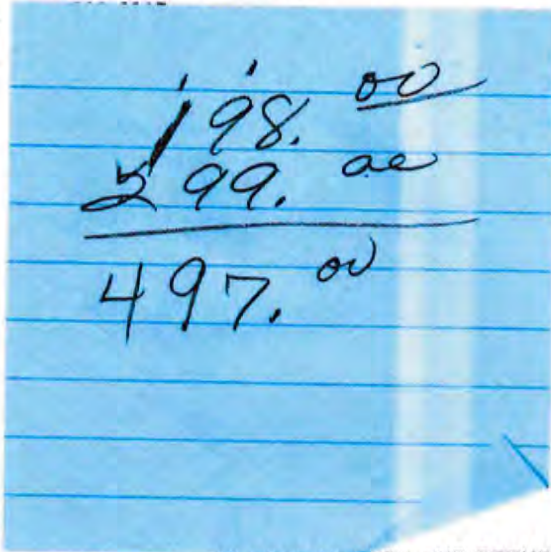 198.00
299.00
497.00